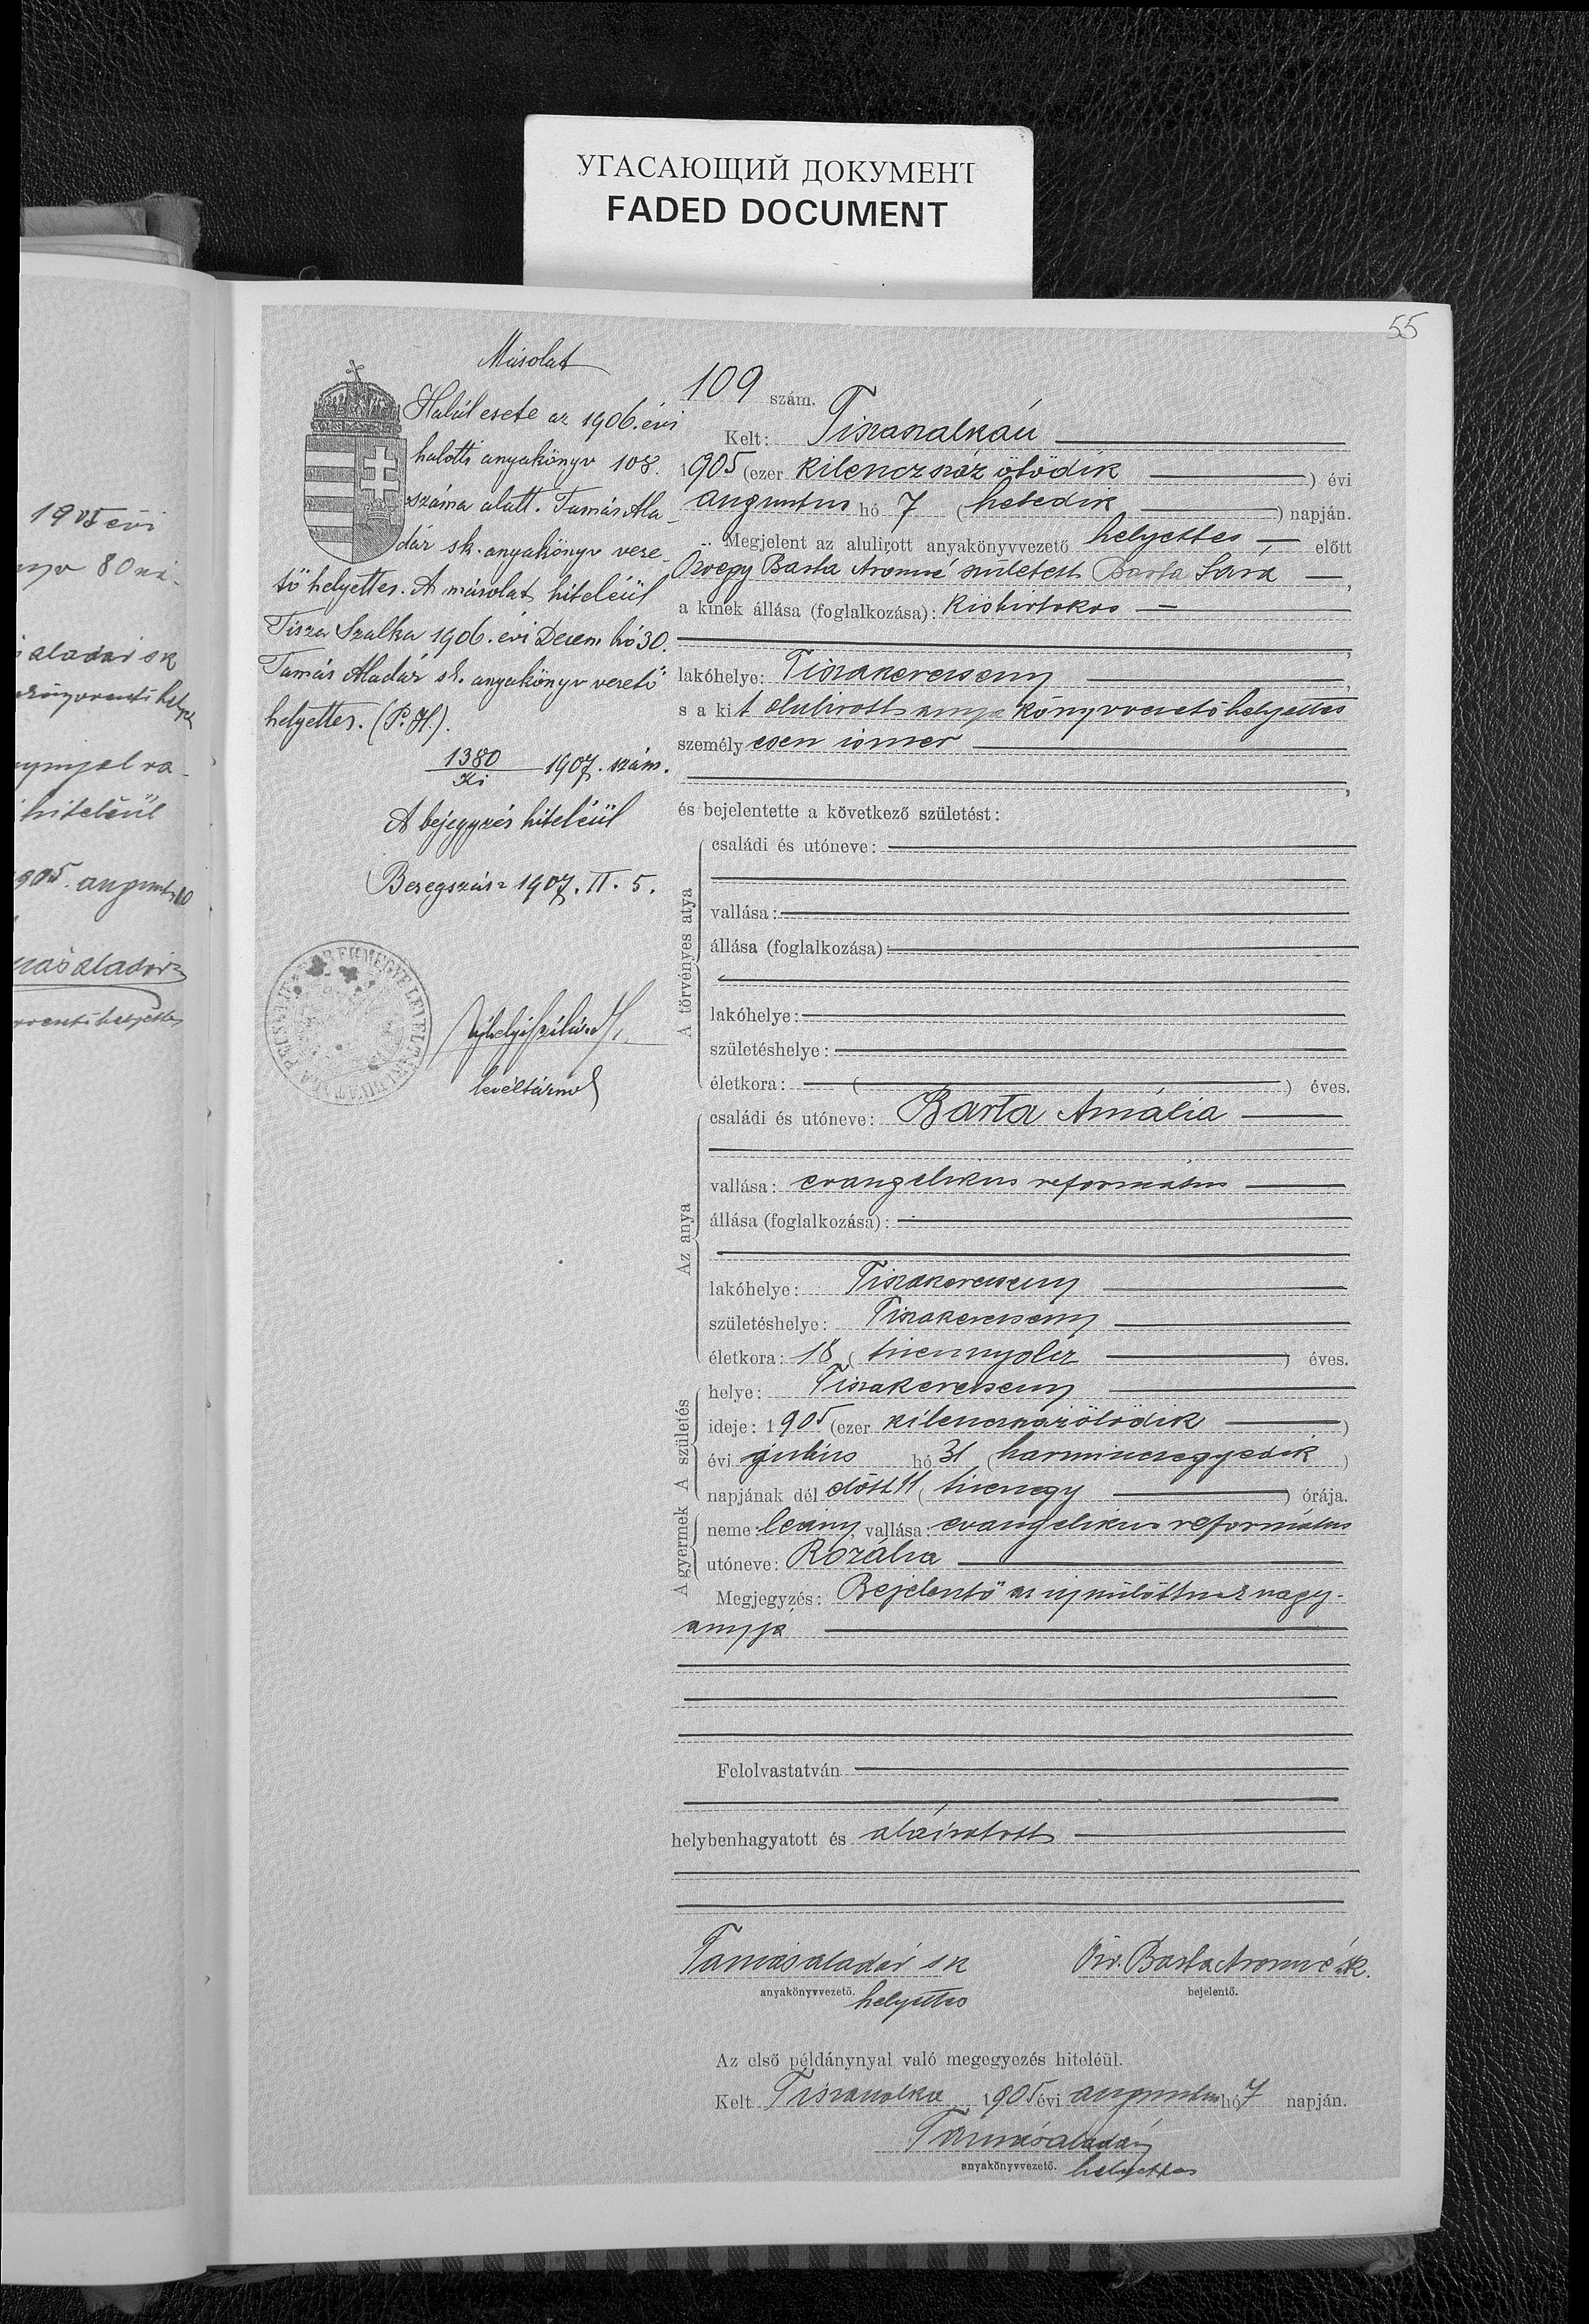 УГАСАЮЩИЙ ДОКУМЕНТ
FADED DOCUMENT
55
1905 évi
80
aladár sk
hiteléül
905. augusztus 10
Másolat
Halál esete az 1906. évi
halotti anyakönyv 108.
száma alatt. Tamás Ala-
dár sk. anyakönyv veze-
tő helyettes. A másolat hiteléül
Tisza Szalka 1906. évi Decem hó 30.
Tamás Aladár sk. anyakönyv vezető
helyettes. (P. H.).
1380/Ki 1907. szám.
A bejegyzés hiteléül
Beregszász 1907. II. 5.
levéltárnok
109 szám.
Kelt: Tiszaszalkán
1905 (ezer kilenczszáz ötödik) évi
augusztus hó 7 (hetedik) napján.
Megjelent az alulirott anyakönyvvezető helyettes előtt
Özvegy Barta Áronné született Barta Sára,
a kinek állása (foglalkozása): kisbirtokos
,
lakóhelye: Tiszakerecseny,
s a kit alulirott anyakönyvvezető helyettes
személyesen ismer
,
és bejelentette a következő születést:
A törvényes atya
családi és utóneve:
vallása:
állása (foglalkozása):
lakóhelye:
születéshelye:
életkora: ( ) éves.
Az anya
családi és utóneve: Barta Amália
vallása: evangelikus református
állása (foglalkozása):
lakóhelye: Tiszakerecseny
születéshelye: Tiszakerecseny
életkora: 18 (tizennyolcz) éves.
A születés
helye: Tiszakerecseny
ideje: 1905 (ezer kilenczszázötödik)
évi julius hó 31 (harminczegyedik)
napjának dél előtt 11 (tizenegy) órája.
A gyermek
neme: leány, vallása: evangelikus református
utóneve: Rozália
Megjegyzés: Bejelentő az ujszülöttnek nagy-
anyja
Felolvastatván
helybenhagyatott és aláiratott
Tamás Aladár sk Özv. Barta Áronné sk.
anyakönyvvezető. helyettes bejelentő.
Az első példánynyal való megegyezés hiteléül.
Kelt Tiszaszalka 1905 évi augusztus hó 7 napján.
Tamás Aladár
anyakönyvvezető. helyettes